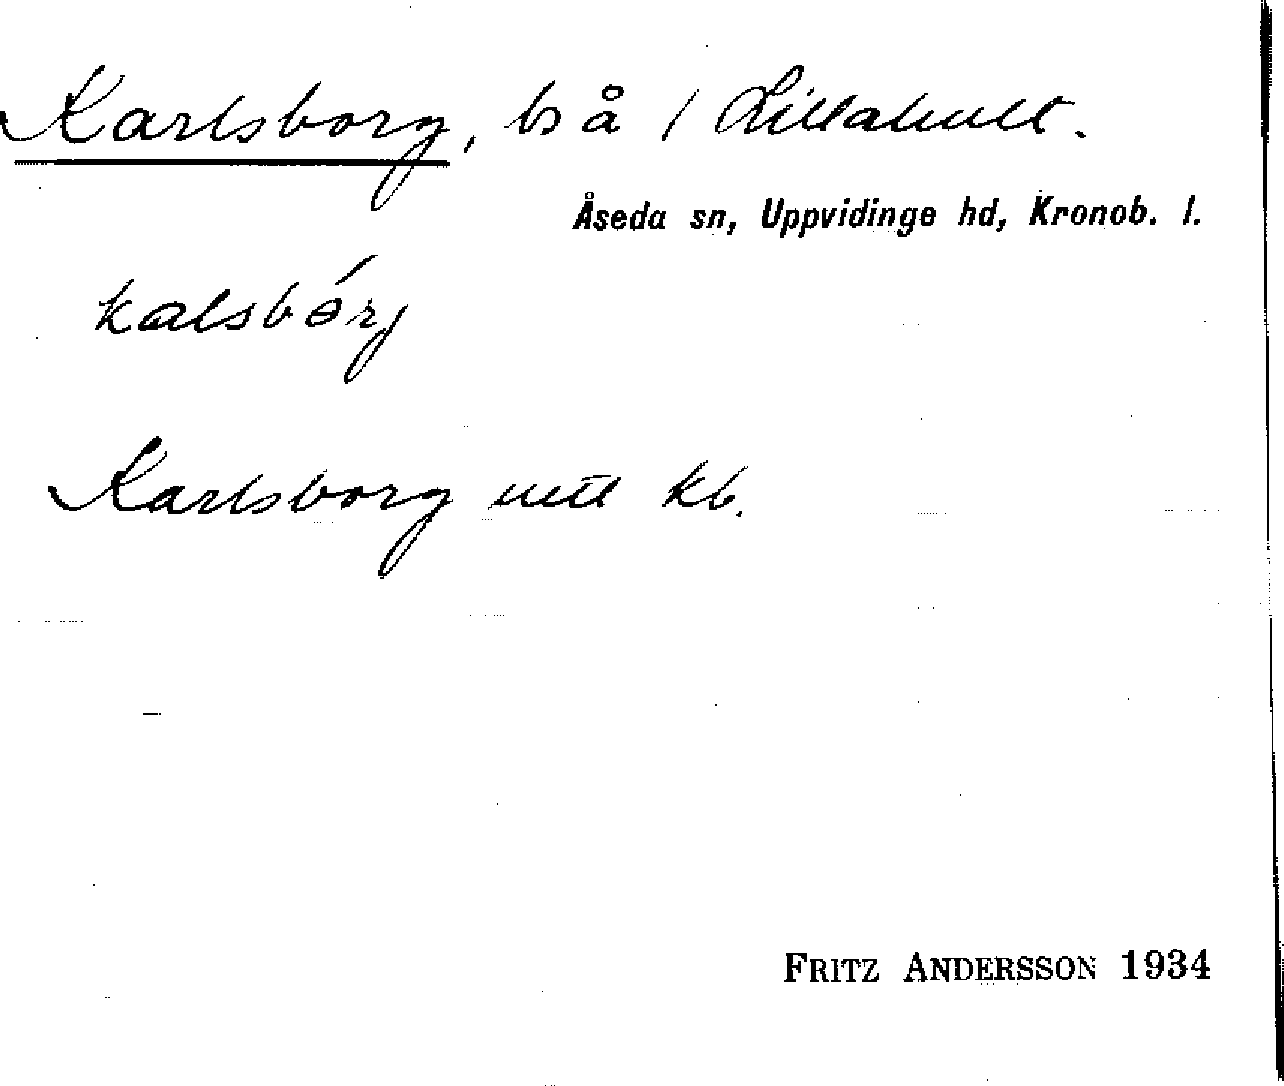 Karlsborg, bs å / Lillahult.
Åseda sn, Uppvidinge hd, Kronob. l.
kalsbórj
Karlsborg kb.
FRITZ ANDERSSON 1934